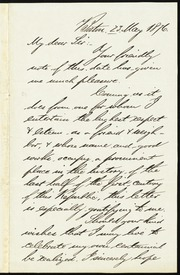 Boston, 22 May 1896.
My dear Sir:-
Your friendly
note of this date has given
me much pleasure.
Coming as it
does from one for whom I
entertain the highest respect
& esteem, as a friend & neigh-
bor, & whose name and good
works, occupy a prominent
place in the history of the
last half of the first century
of this Republic, this letter
is especially gratifying to me.
Should your kind
wishes that I may live to
celebrate my own centennial
be realized, I sincerely hope